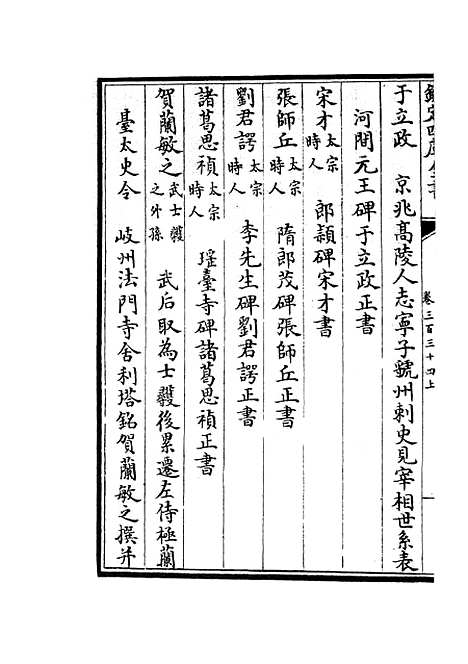 欽定四庫全書
卷三百三十四上
于立政　京兆髙陵人志寧子虢州刺史見宰相世系表
河間元王碑于立政正書
宋才太宗時人　郎頴碑宋才書
張師丘太宗時人　隋郎茂碑張師丘正書
劉君諤太宗時人　李先生碑劉君諤正書
諸葛思禎太宗時人　瑶臺寺碑諸葛思禎正書
賀蘭敏之武士彠之外孫　武后取為士彠後累遷左侍極蘭
臺太史令　岐州法門寺舍利塔銘賀蘭敏之撰并